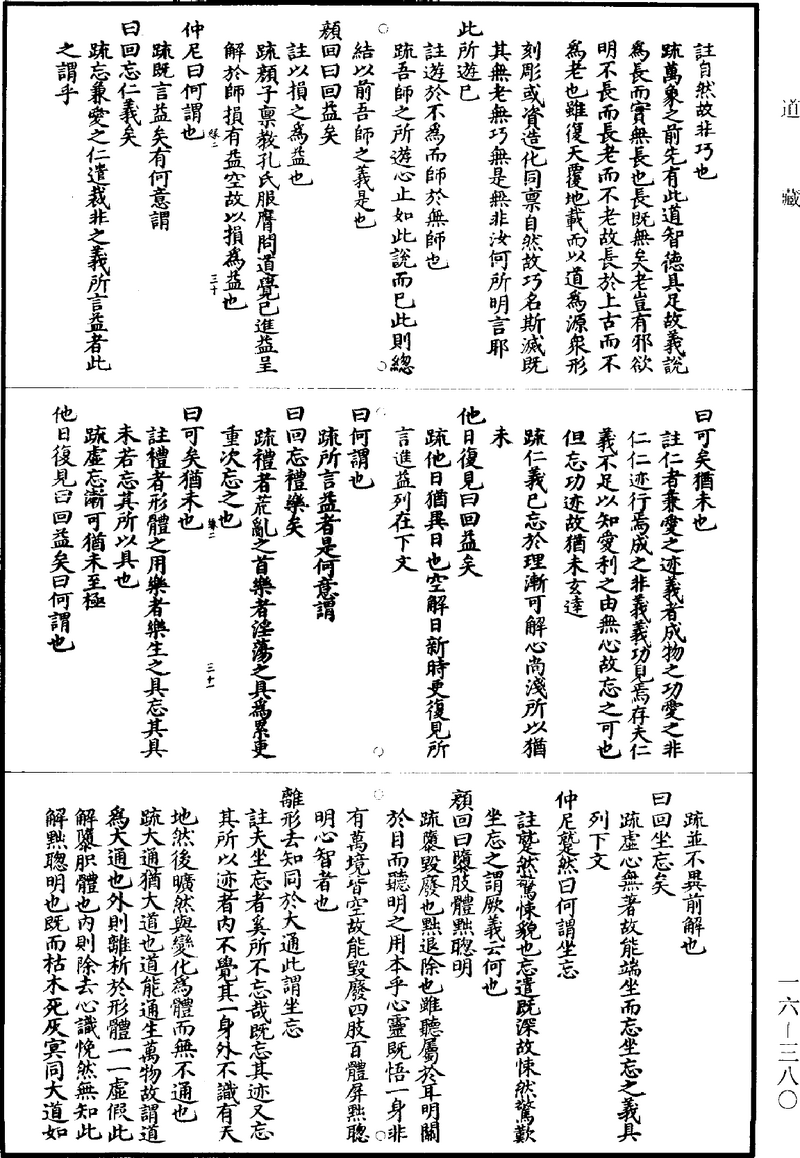 道藏
一六—三八〇
註自然故非巧也
疏萬象之前先有此道智德具足故義說
爲長而實無長也長既無矣老豈有邪欲
明不長而長老而不老故長於上古而不
爲老也雖復天覆地載而以道爲源衆形
刻彫或資造化同稟自然故巧名斯滅既
其無老無巧無是無非汝何所明言耶
此所遊已
註遊於不爲而師於無師也
疏吾師之所遊心止如此說而已此則緫
結以前吾師之義是也
顏回曰回益矣
註以損之爲益也
疏顏子稟教孔氏服膺問道覺已進益呈
解於師損有益空故以損爲益也
仲尼曰何謂也
疏既言益矣有何意謂
曰回忘仁義矣
疏忘兼愛之仁遣裁非之義所言益者此
之謂乎
三十
曰可矣猶未也
註仁者兼愛之迹義者成物之功愛之非
仁仁迹行焉成之非義義功見焉存夫仁
義不足以知愛利之由無心故忘之可也
但忘功迹故猶未玄達
疏仁義已忘於理漸可解心尚淺所以猶
未
他日復見曰回益矣
疏他日猶異日也空解日新時更復見所
言進益列在下文
曰何謂也
疏所言益者是何意謂
曰回忘禮樂矣
疏禮者荒亂之首樂者淫蕩之具爲累更
重次忘之也
曰可矣猶未也
註禮者形體之用樂者樂生之具忘其具
未若忘其所以具也
疏虛忘漸可猶未至極
他日復見曰回益矣曰何謂也
三十一
疏並不異前解也
曰回坐忘矣
疏虛心無著故能端坐而忘坐忘之義具
列下文
仲尼蹵然曰何謂坐忘
註蹵然驚悚貌也忘遣既深故悚然驚歎
坐忘之謂厥義云何也
顏回曰隳肢體黜聰明
疏隳毀廢也黜退除也雖聽屬於耳明關
於目而聰明之用本乎心靈既悟一身非
有萬境皆空故能毀廢四肢百體屏黜聰
明心智者也
離形去知同於大通此謂坐忘
註夫坐忘者奚所不忘哉既忘其迹又忘
其所以迹者內不覺其一身外不識有天
地然後曠然與變化爲體而無不通也
疏大通猶大道也道能通生萬物故謂道
爲大通也外則離析於形體一一虛假此
解隳肢體也內則除去心識怳然無知此
解黜聰明也既而枯木死灰冥同大道如